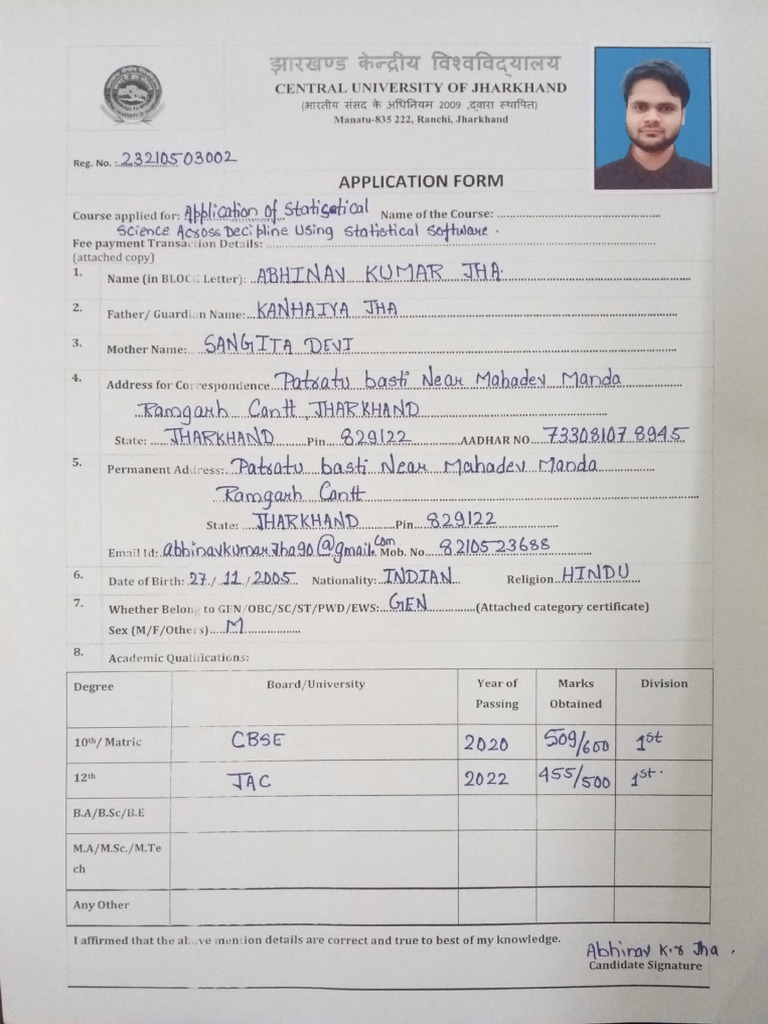 झारखण्ड केन्द्रीय विश्वविद्यालय
CENTRAL UNIVERSITY OF JHARKHAND
(भारतीय संसद के अधिनियम 2009 ,द्वारा स्थापित)
Manatu-835 222, Ranchi, Jharkhand
Reg. No. : 23210503002
APPLICATION FORM
Course applied for: Application of Statisatical Name of the Course:
Science Across Decipline Using Statistical Software.
Fee payment Transaction Details:
(attached copy)
1. Name (in BLOCK Letter): ABHINAV KUMAR JHA.
2. Father/ Guardian Name: KANHAIYA JHA
3. Mother Name: SANGITA DEVI
4. Address for Correspondence Patratu basti Near Mahadev Manda
Ramgarh Cantt, JHARKHAND
State: JHARKHAND Pin 829122 AADHAR NO 733081078945
5. Permanent Address: Patratu basti Near Mahadev Manda
Ramgarh Cantt
State: JHARKHAND Pin 829122
Email Id: abhinavkumarJha90@gmail.com Mob. No 8210523688
6. Date of Birth: 27/11/2005 Nationality: INDIAN Religion HINDU
7. Whether Belong to GEN/OBC/SC/ST/PWD/EWS: GEN (Attached category certificate)
Sex (M/F/Others) M
8. Academic Qualifications:
Degree Board/University Year of Passing Marks Obtained Division
10th/ Matric CBSE 2020 509/600 1st
12th JAC 2022 455/500 1st.
B.A/B.Sc/B.E
M.A/M.Sc./M.Te
ch
Any Other
I affirmed that the above mention details are correct and true to best of my knowledge.
Abhinav Kr Jha.
Candidate Signature